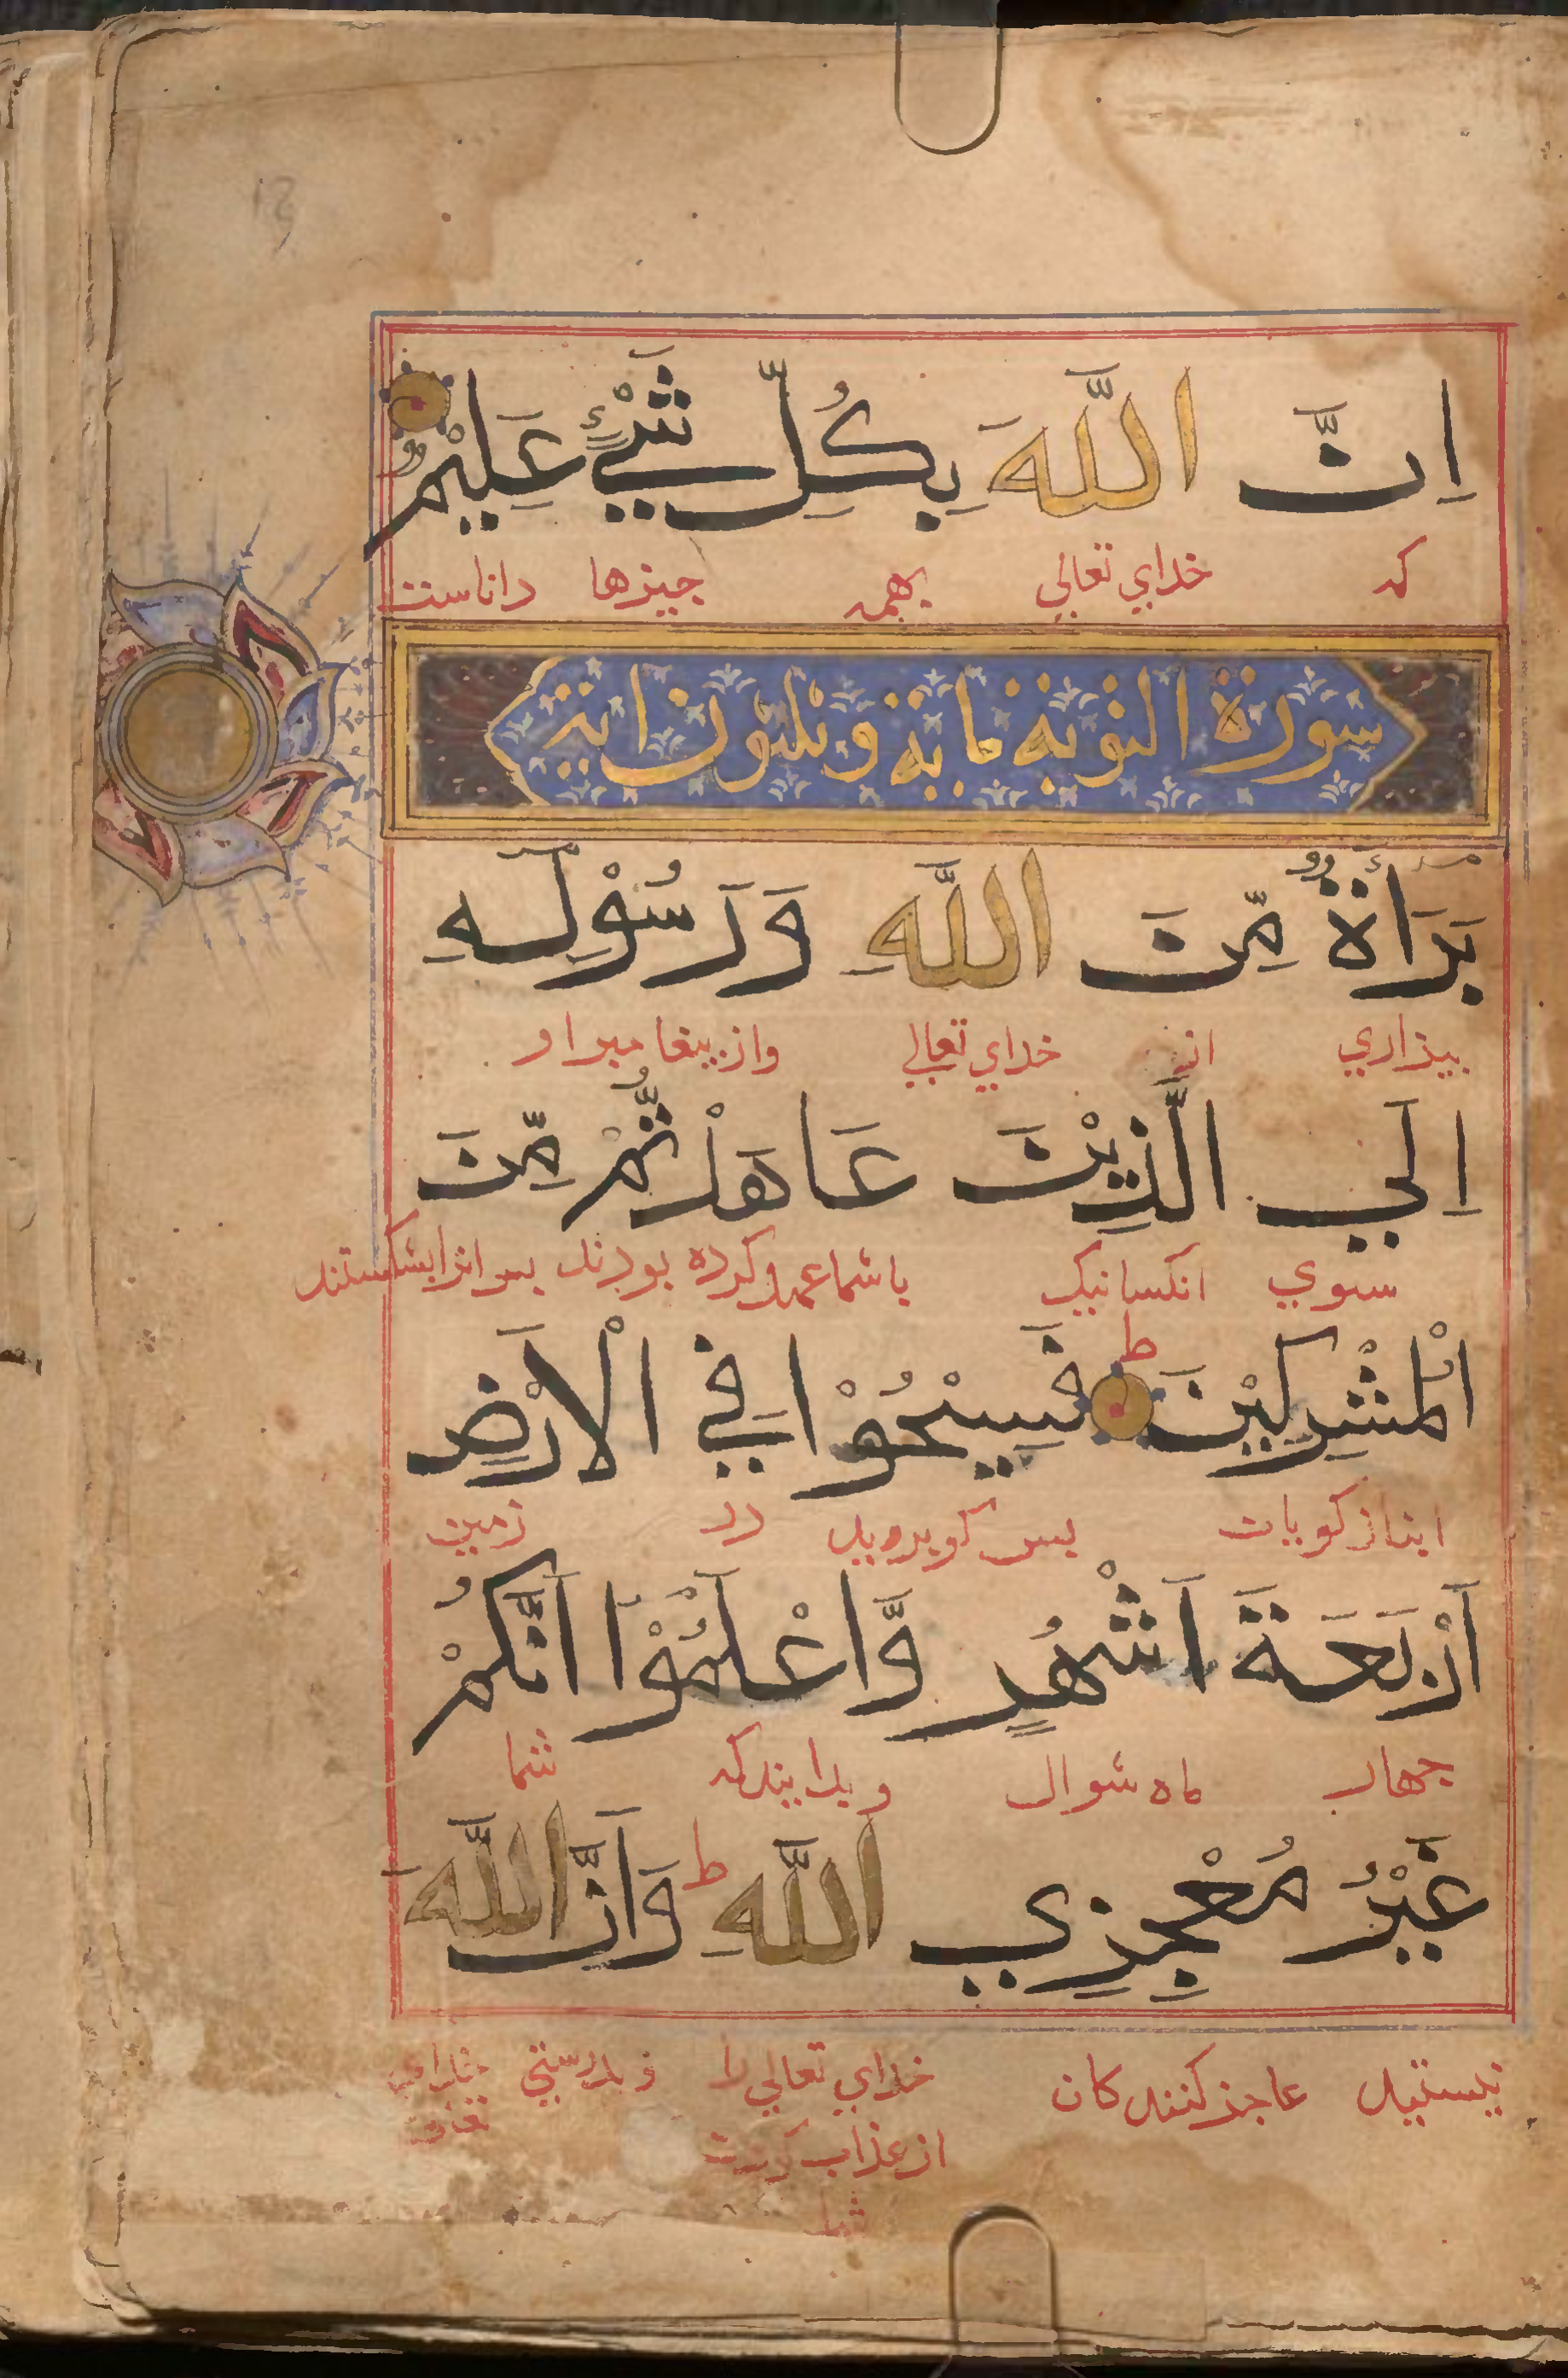 اِنَّ اللّٰهَ بِكُلِّ شَيْءٍ عَلِيْمٌ
که خدای تعالی بهمه چیزها داناست
سورة التوبة مایة وثلثون ایة
بَرَآءَةٌ مِّنَ اللّٰهِ وَرَسُوْلِهٖ
بیزاری از خدای تعالی واز پیغامبر او
اِلَي الَّذِيْنَ عَاهَدْتُّمْ مِّنَ
سوی انکسانیک باشما عهد کرده بودند پس انرا بشکستند
الْمُشْرِكِيْنَ ط فَسِيْحُوْا فِي الْاَرْضِ
پس در زمین
اَرْبَعَةَ اَشْهُرٍ وَّاعْلَمُوْا اَنَّكُمْ
جهار ماه شوال وبدانیدکه شما
غَيْرُ مُعْجِزِي اللّٰهِ ط وَاَنَّ اللّٰهَ
نیستید عاجز کنندکان خدای تعالی را وبدرستی
از عذاب
شما